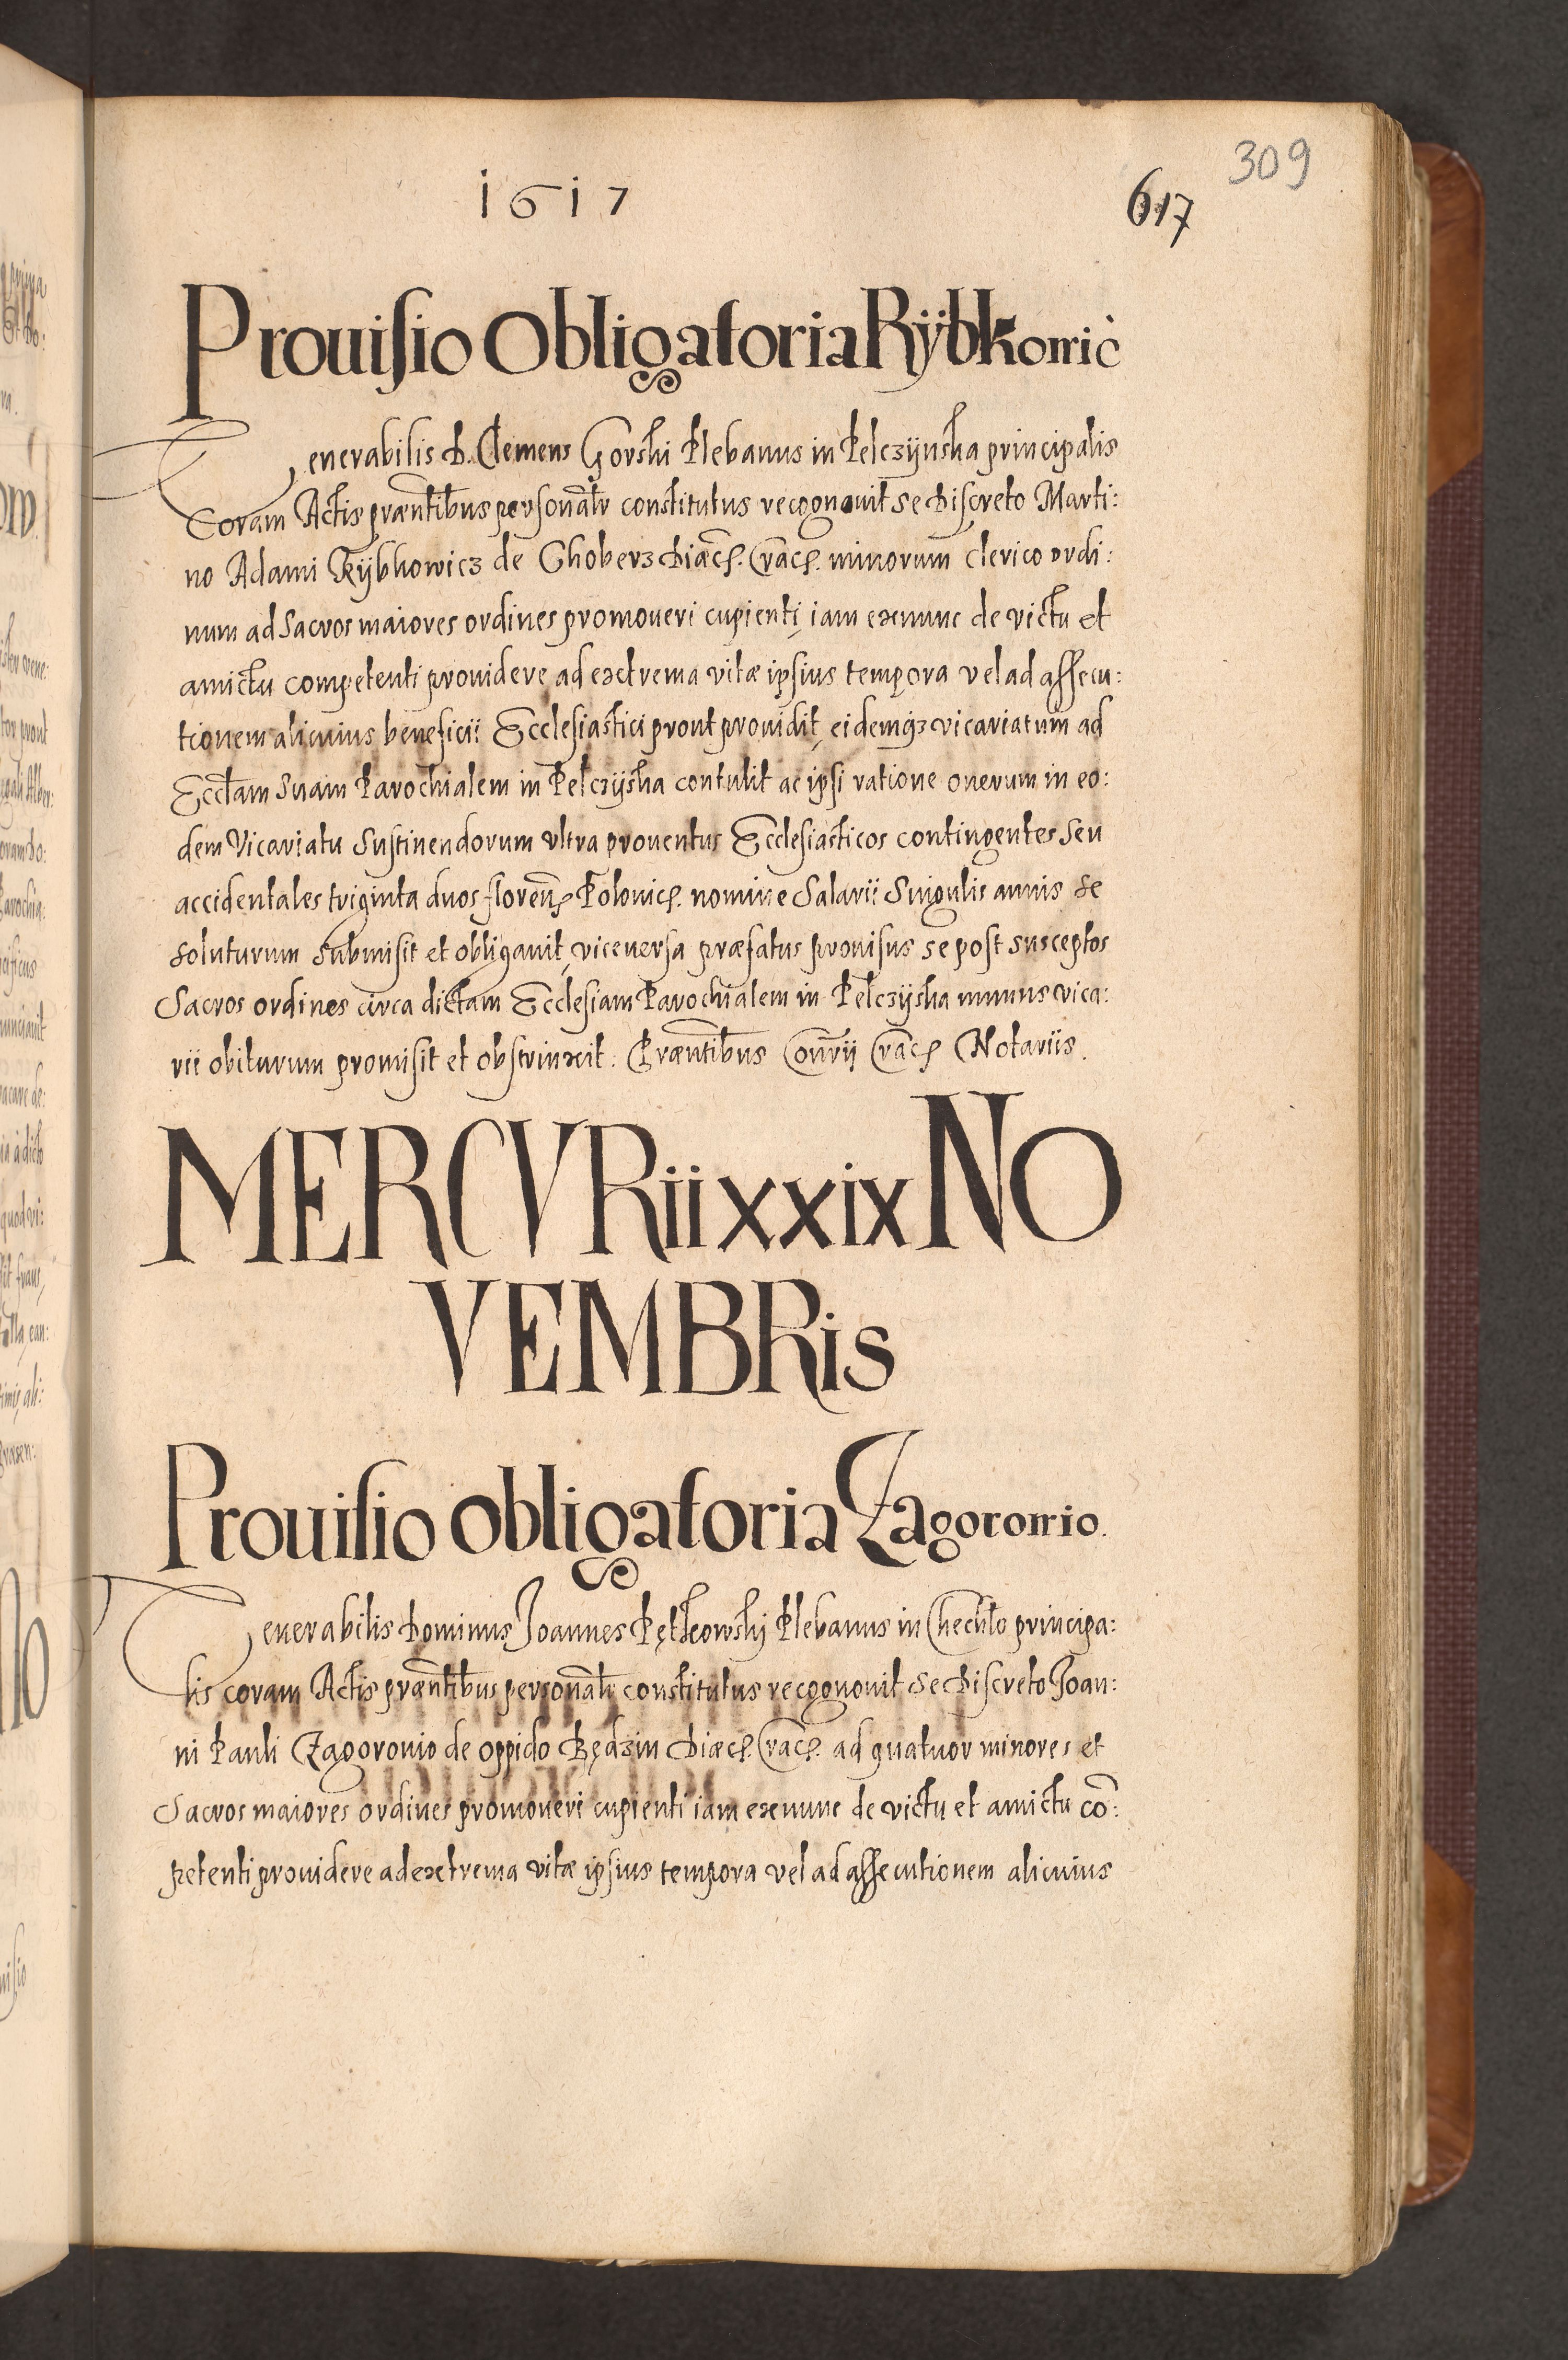 1617
617
309
Prouisio Obligatoria Rÿbkowic
Venerabilis D. Clemens Gorski Plebanus in Pelczÿnska principalis
Coram Actis præntibus personalr constitutus recognouit se discreto Marti:
no Adami Rÿbkowicz de Chobers diæc. Crac. minorum clerico ordi:
num ad Sacros maiores ordines promoueri cupienti, iam exnunc de victu et
amictu competenti prouidere ad extrema vitæ ipsius tempora vel ad assecu:
tionem alicuius beneficii Ecclesiastici prout prouidit, eidemq3 vicariatum ad
Eccłam suam Parochialem in Pelczÿska contulit ac ipsi ratione onerum in eo:
dem Vicariatu Sustinendorum vltra prouentus Ecclesiasticos contingentes seu
accidentales triginta duos floren Polonic. nomine Salarii Singulis annis se
soluturum submisit et obligauit, viceuersa præfatus prouisus se post susceptos
Sacros ordines circa dictam Ecclesiam Parochialem in Pelczÿska munus vica:
rii obiturum promisit et obstrinxit. Præntibus Conrij Crac Notariis.
MERCVRii xxix NO
VEMBRis
Prouisio obligatoria Zagorowio.
Venerabilis Dominus Joannes Pętkowskj Plebanus in Chechło principa:
lis coram Actis præntibus personalr constitutus recognouit se discreto Joan:
ni Pauli Zagorouio de oppido Będzin diæc. Crac. ad quatuor minores et
Sacros maiores ordines promoueri cupienti iam exnunc de victu et amictu cō:
petenti prouidere ad extrema vitæ ipsius tempora vel ad assecutionem alicuius